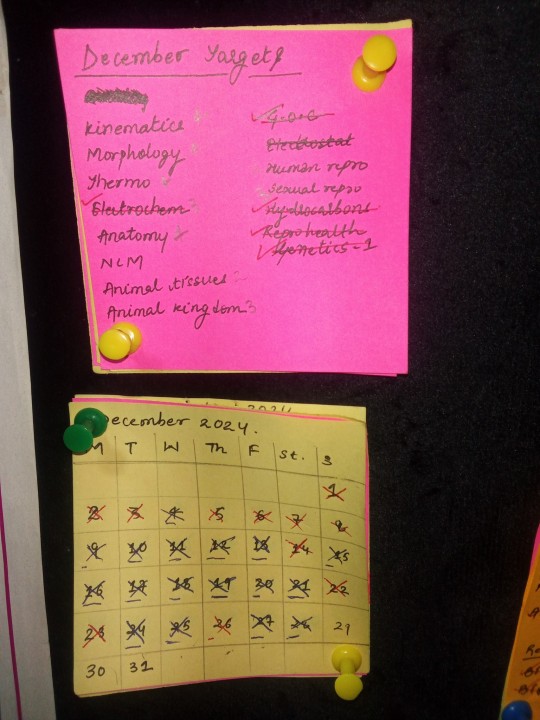 December Targets
Kinematics
Morphology
Thermo
Electrochem
Anatomy
NLM
Animal tissues
Animal kingdom 3
G.O.C
Electrostat
Human repro
Sexual repro
Hydrocarbons
Reprohealth
Genetics-1
2024
December 2024.
M T W Th F St. S
1
2 3 4 5 6 7 8
9 10 11 12 13 14 15
16 17 18 19 20 21 22
23 24 25 26 27 28 29
30 31